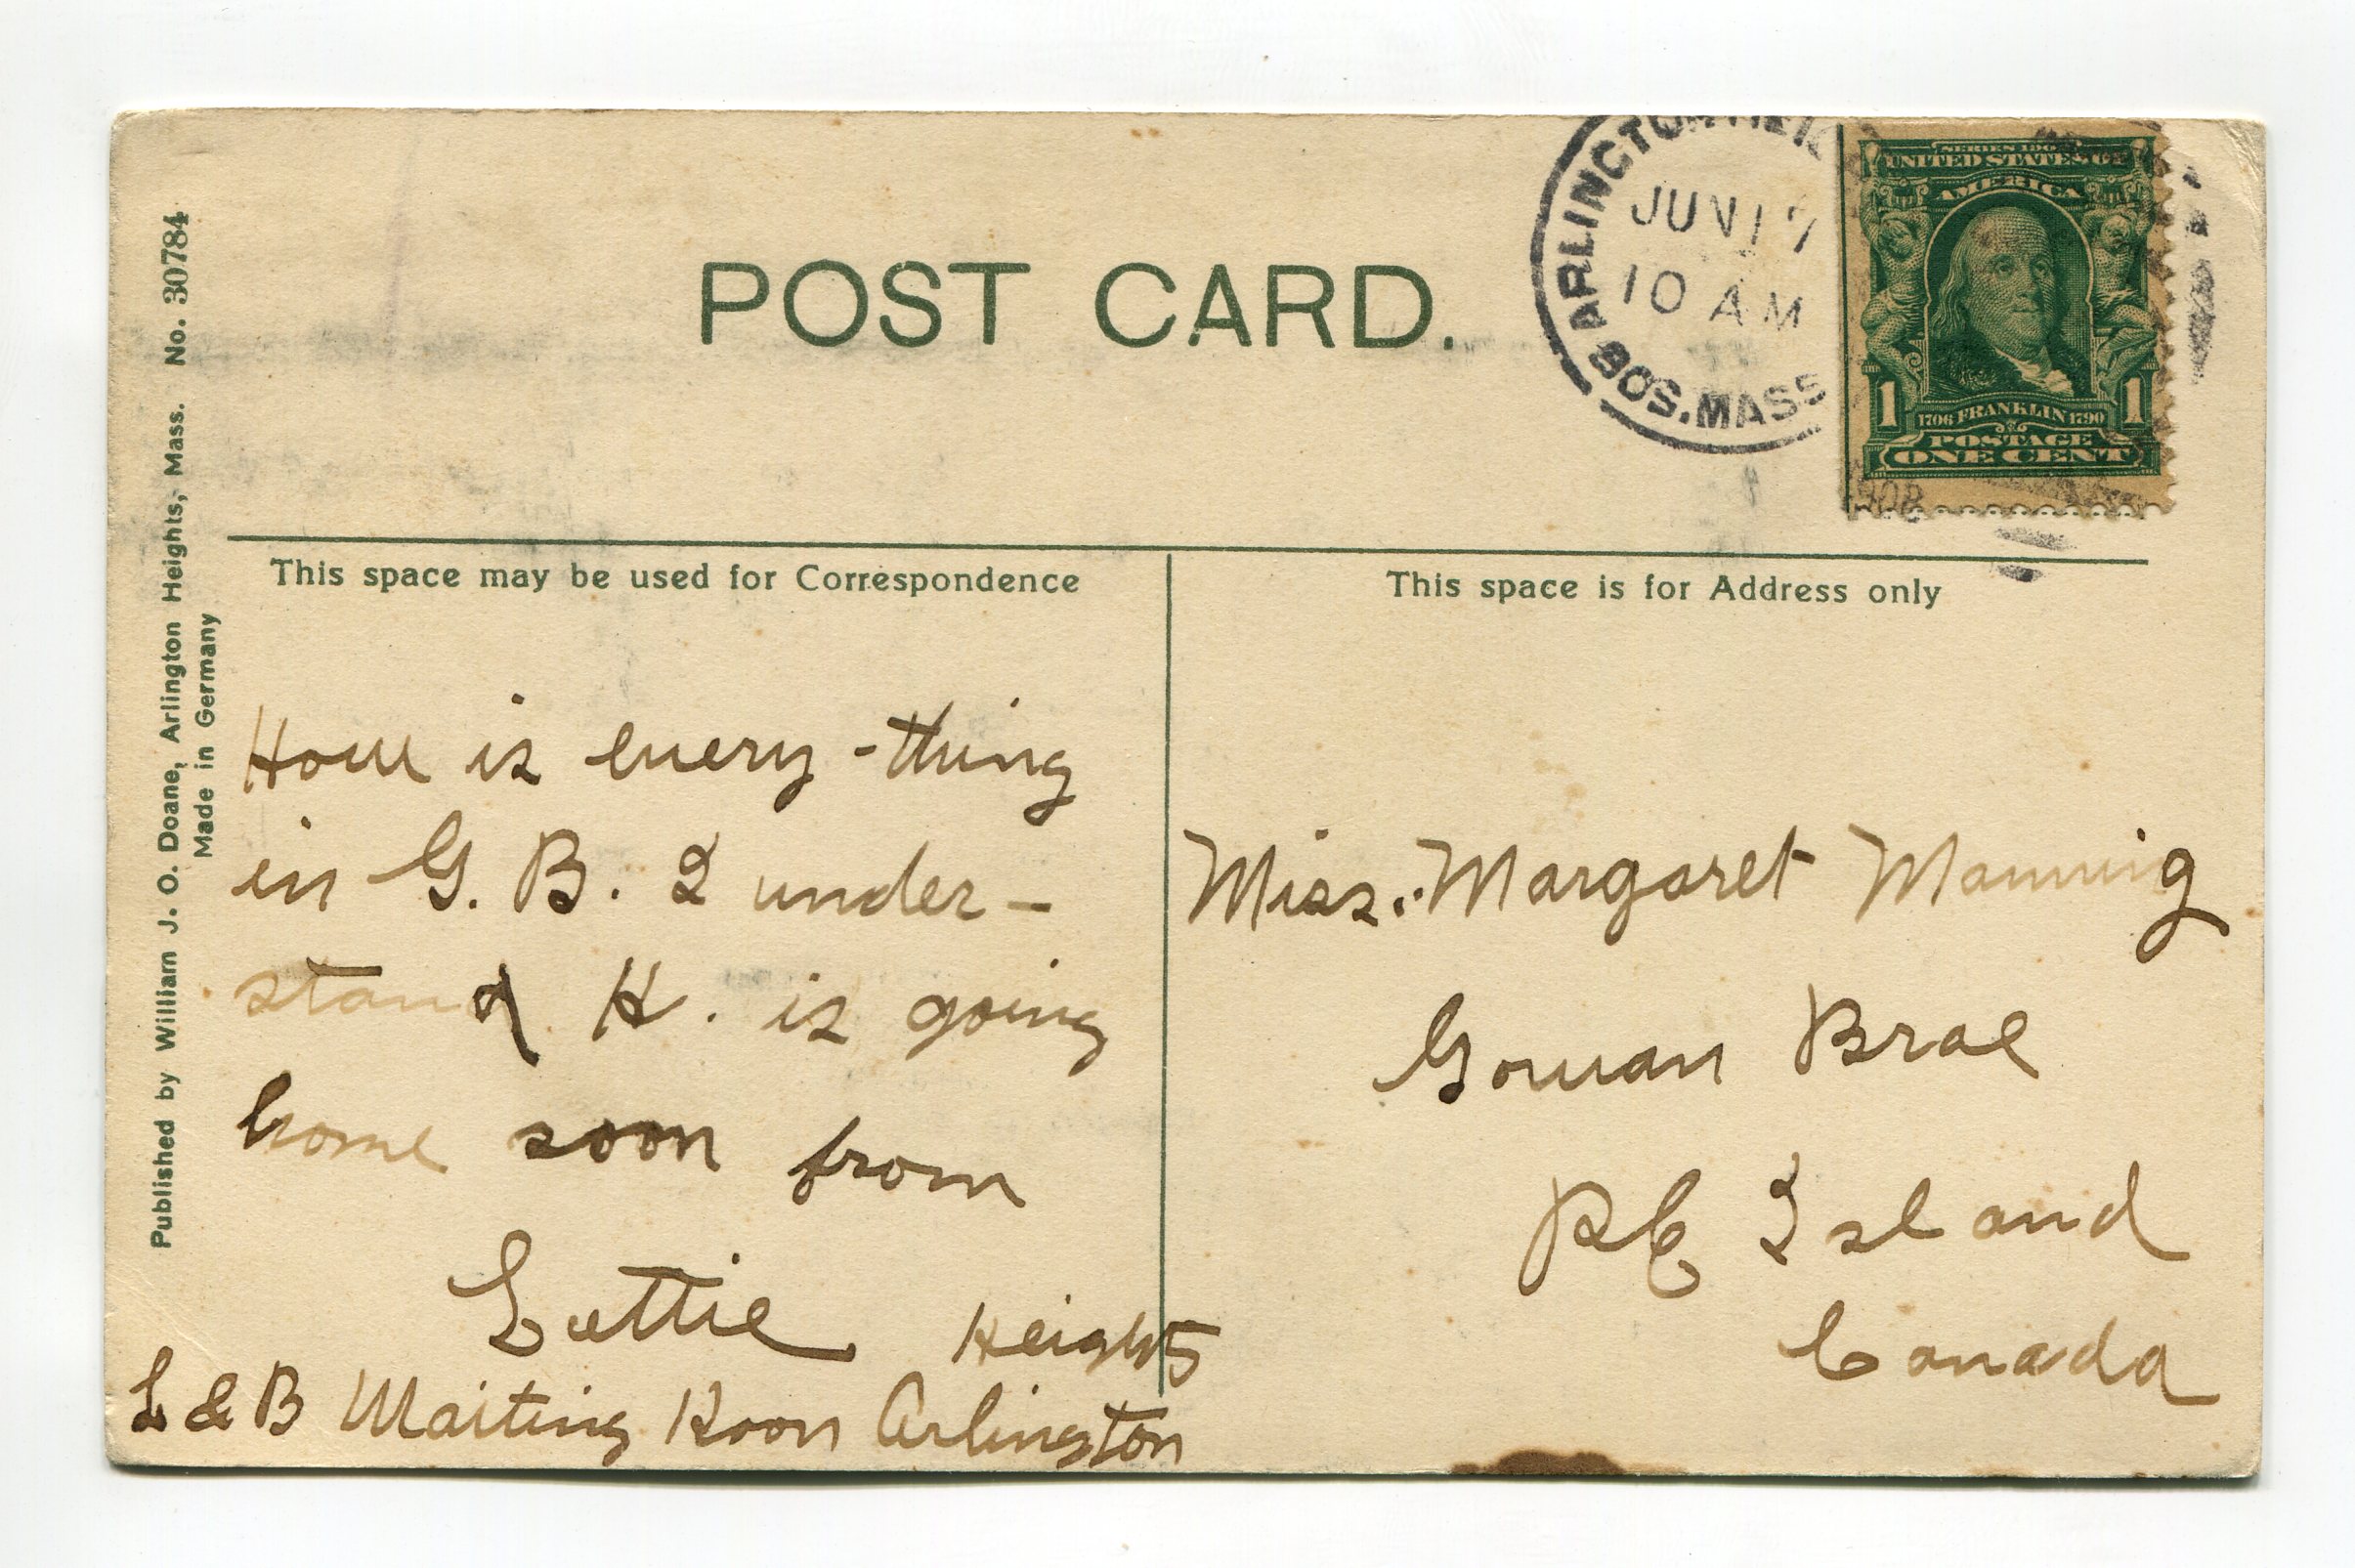 POST CARD.
ARLINGTON HEI
JUN 17
10 AM
BOS. MASS
SERIES 1902
UNITED STATES OF
AMERICA
1 1706 FRANKLIN 1790 1
POSTAGE
ONE CENT
908
Published by William J. O. Doane, Arlington Heights, Mass. No. 30784
Made in Germany
This space may be used for Correspondence
How is every-thing
in G. B. I under-
stand H. is going
home soon from
Lettie
Heights
L & B Waiting Room Arlington
This space is for Address only
Miss. Margaret Manning
Gowan Brae
P E Island
Canada